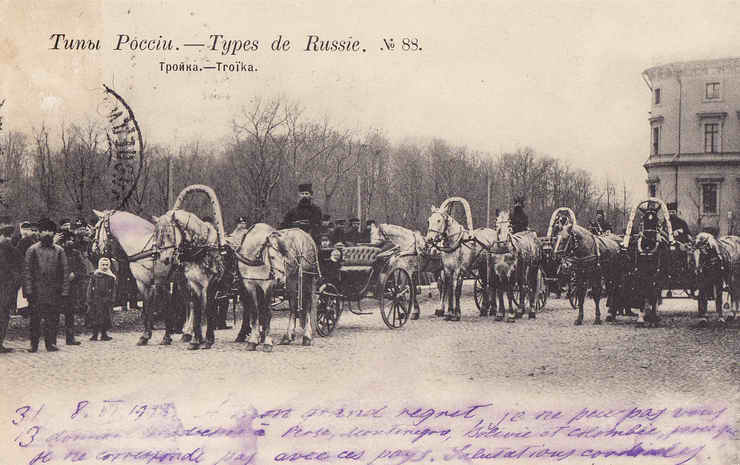 Типы Россіи.—Types de Russie. № 88.
Тройка.—Troïka.
31 8. VI À mon grand regret, je ne peu pas vous
donner Perse, Montenegro, Bolivie et Colombie,
je ne corresponde pas avec ces pays. Salutations cordiales.